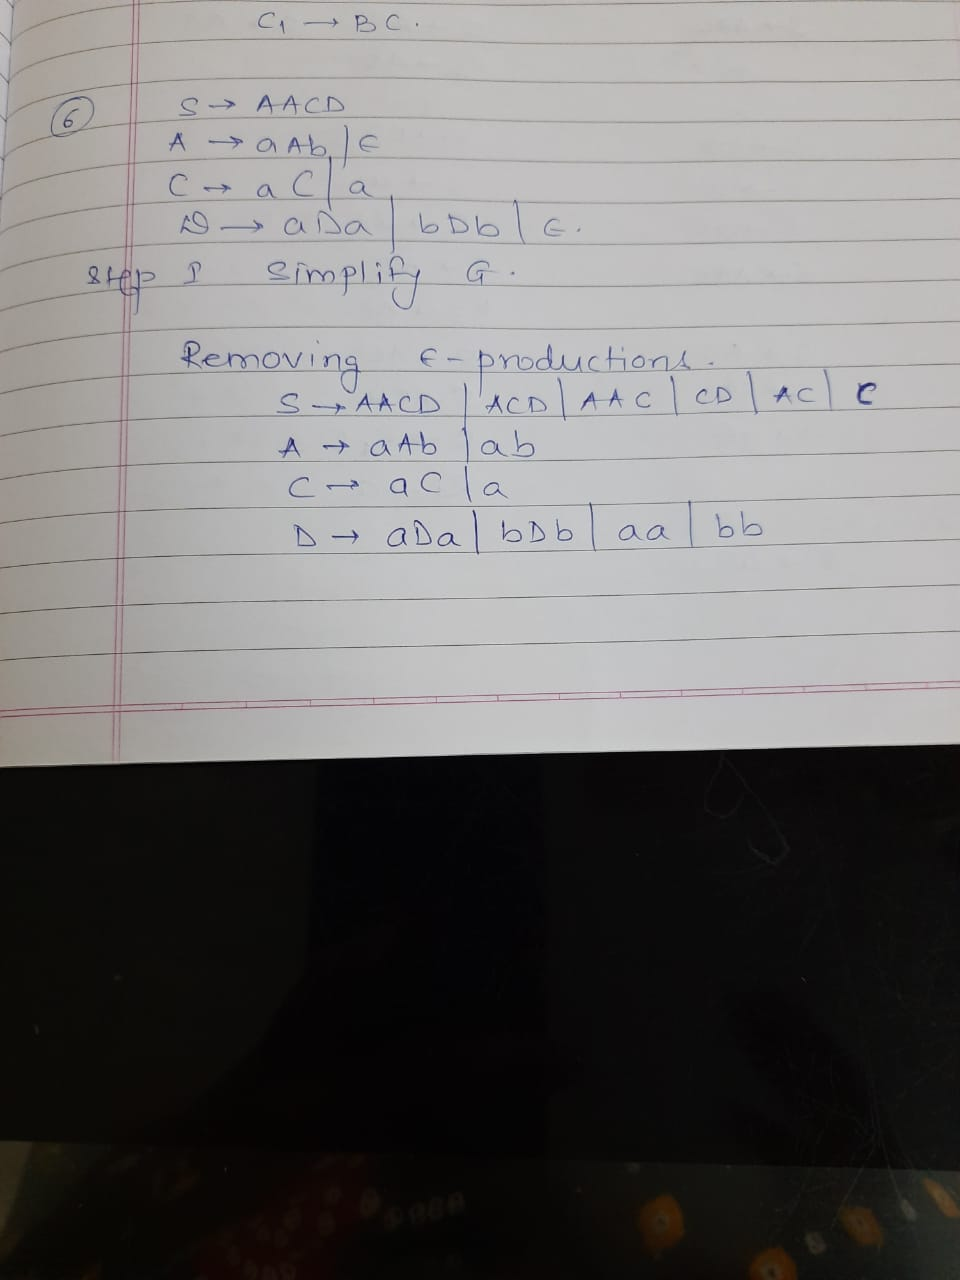 C₁ → BC.
6
S → AACD
A → aAb | ϵ
C → aC | a
D → aDa | bDb | ϵ.
Step I Simplify G.
Removing ϵ-productions.
S → AACD | ACD | AAC | CD | AC | C
A → aAb | ab
C → aC | a
D → aDa | bDb | aa | bb